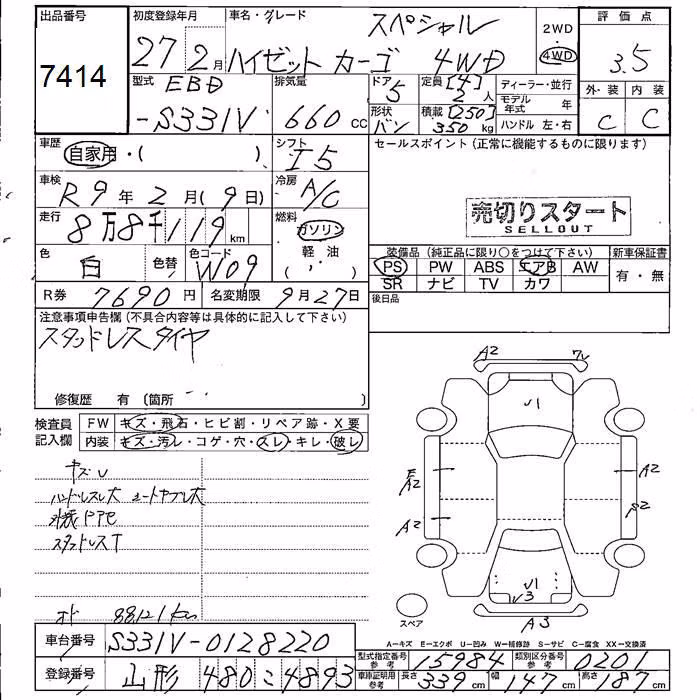 出品番号
7414
初度登録年月
27 2月
車名・グレード
スペシャル
ハイゼット カーゴ 4WD
2WD
・
4WD
評価点
3.5
外・装 内装
C C
型式 EBD
-S331V
排気量
660 cc
ドア
5
定員 [4]
2人
形状
バン
積載 [250]
350 kg
ディーラー・並行
モデル年式 年
ハンドル 左・右
車歴
自家用・( )
シフト
I5
セールスポイント(正常に機能するものに限ります)
車検
R9年2月(9日)
冷房
A/C
走行
8万8千119 km
燃料
ガソリン
軽油
( )
売切りスタート
SELLOUT
色
白
色替
色コード
W09
装備品(純正品に限り○をつけて下さい)
PS PW ABS エアB AW
SR ナビ TV カワ
新車保証書
有・無
R券 7690円
名変期限 9月27日
後日品
注意事項申告欄(不具合内容等は具体的に記入して下さい)
スタッドレスタイヤ
修復歴 有〔箇所 〕
検査員記入欄
FW キズ・飛石・ヒビ割・リペア跡・X要
内装 キズ・汚レ・コゲ・穴・スレ・キレ・破レ
キズU
ハンドルスレ大 シートヤブレ大
スタッドレスT
88121km
A2
A2
A2
A2
A3
スペア
A-キズ E-エクボ U-凹み W-補修跡 S-サビ C-腐食 XX-交換済
車台番号 S331V-0128220
登録番号 山形 480 ミ 4893
型式指定番号 参考 15984
類別区分番号 参考 0201
車庫証明用 参考 長さ 339cm 幅 147cm 高さ 187cm